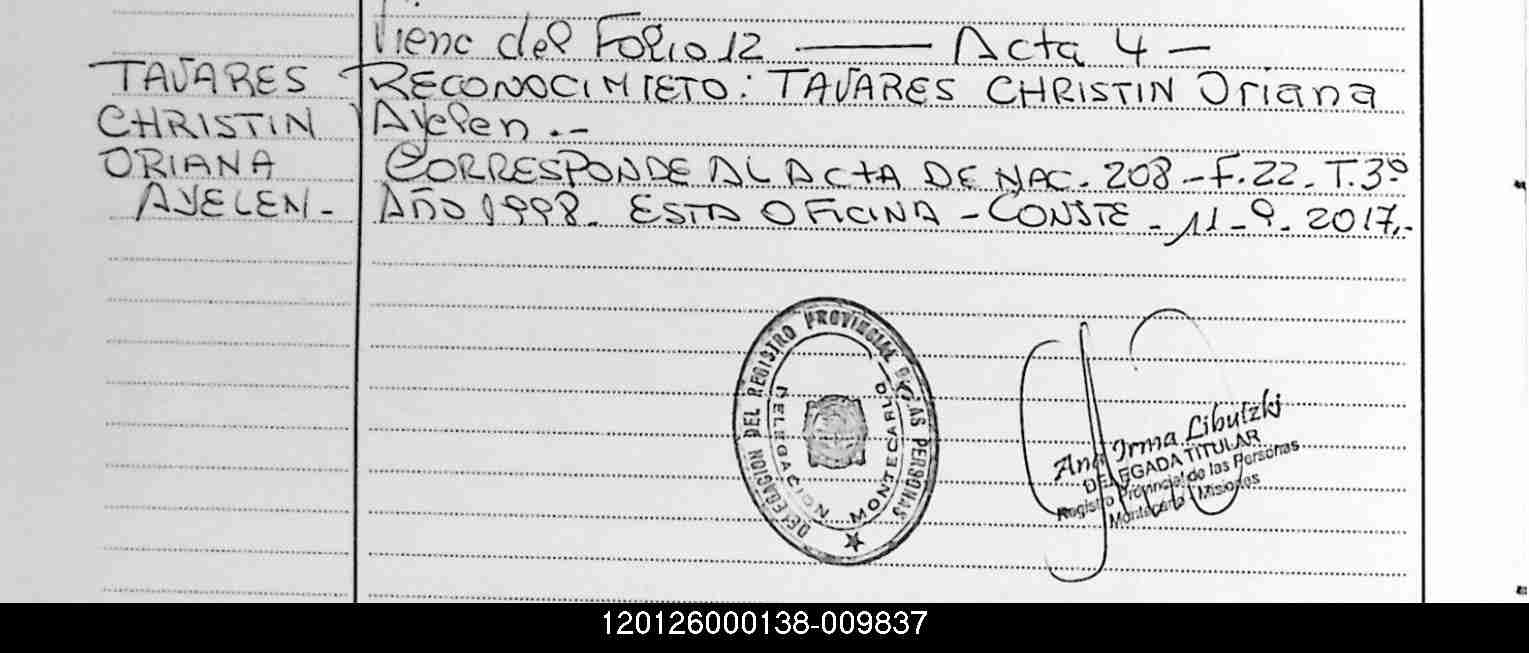 Viene del Folio 12 — Acta 4 —
TAVARES
CHRISTIN
ORIANA
AYELEN.-
RECONOCIMIETO: TAVARES CHRISTIN Oriana
Ayelen.--
CORRESPONDE AL ACTA DE NAC. 208 - F. 22. T. 3º
Año 1998. ESTA OFICINA - CONSTE - 11 - 9 - 2017.-
DELEGACION DEL REGISTRO PROVINCIAL DE LAS PERSONAS
DELEGACIÓN MONTECARLO
Ana Irma Libutzki
DELEGADA TITULAR
Registro Provincial de las Personas
Montecarlo Misiones
120126000138-009837